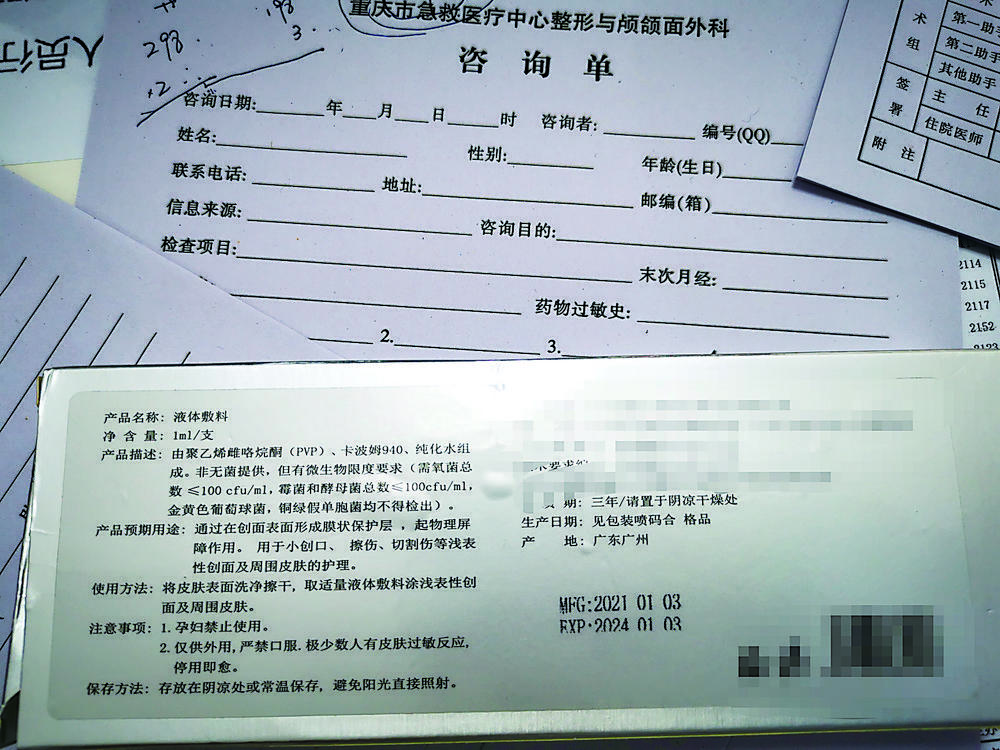 人员行
298
198
3.
×2
重庆市急救医疗中心整形与颅颌面外科
咨 询 单
咨询日期:______年____月____日____时 咨询者:________ 编号(QQ)
姓名: 性别: 年龄(生日)
联系电话: 地址: 邮编(箱)
信息来源: 咨询目的:
检查项目: 末次月经:
药物过敏史:
2. 3.
术
组
签
署
第一助手
第二助手
其他助手
主 任
住院医师
附 注
2114
2115
2117
2152
产品名称: 液体敷料
净 含 量: 1ml/支
产品描述: 由聚乙烯雌咯烷酮 (PVP)、卡波姆940、纯化水组
成。非无菌提供,但有微生物限度要求 (需氧菌总
数 ≤100 cfu/ml, 霉菌和酵母菌总数≤100cfu/ml,
金黄色葡萄球菌, 铜绿假单胞菌均不得检出)。
产品预期用途: 通过在创面表面形成膜状保护层 , 起物理屏
障作用。 用于小创口、 擦伤、切割伤等浅表
性创面及周围皮肤的护理。
使用方法: 将皮肤表面洗净擦干, 取适量液体敷料涂浅表性创
面及周围皮肤。
注意事项: 1. 孕妇禁止使用。
2. 仅供外用, 严禁口服. 极少数人有皮肤过敏反应,
停用即愈。
保存方法: 存放在阴凉处或常温保存, 避免阳光直接照射。
期: 三年/请置于阴凉干燥处
生产日期: 见包装喷码合 格品
产 地: 广东广州
MFG:2021 01 03
EXP:2024 01 03